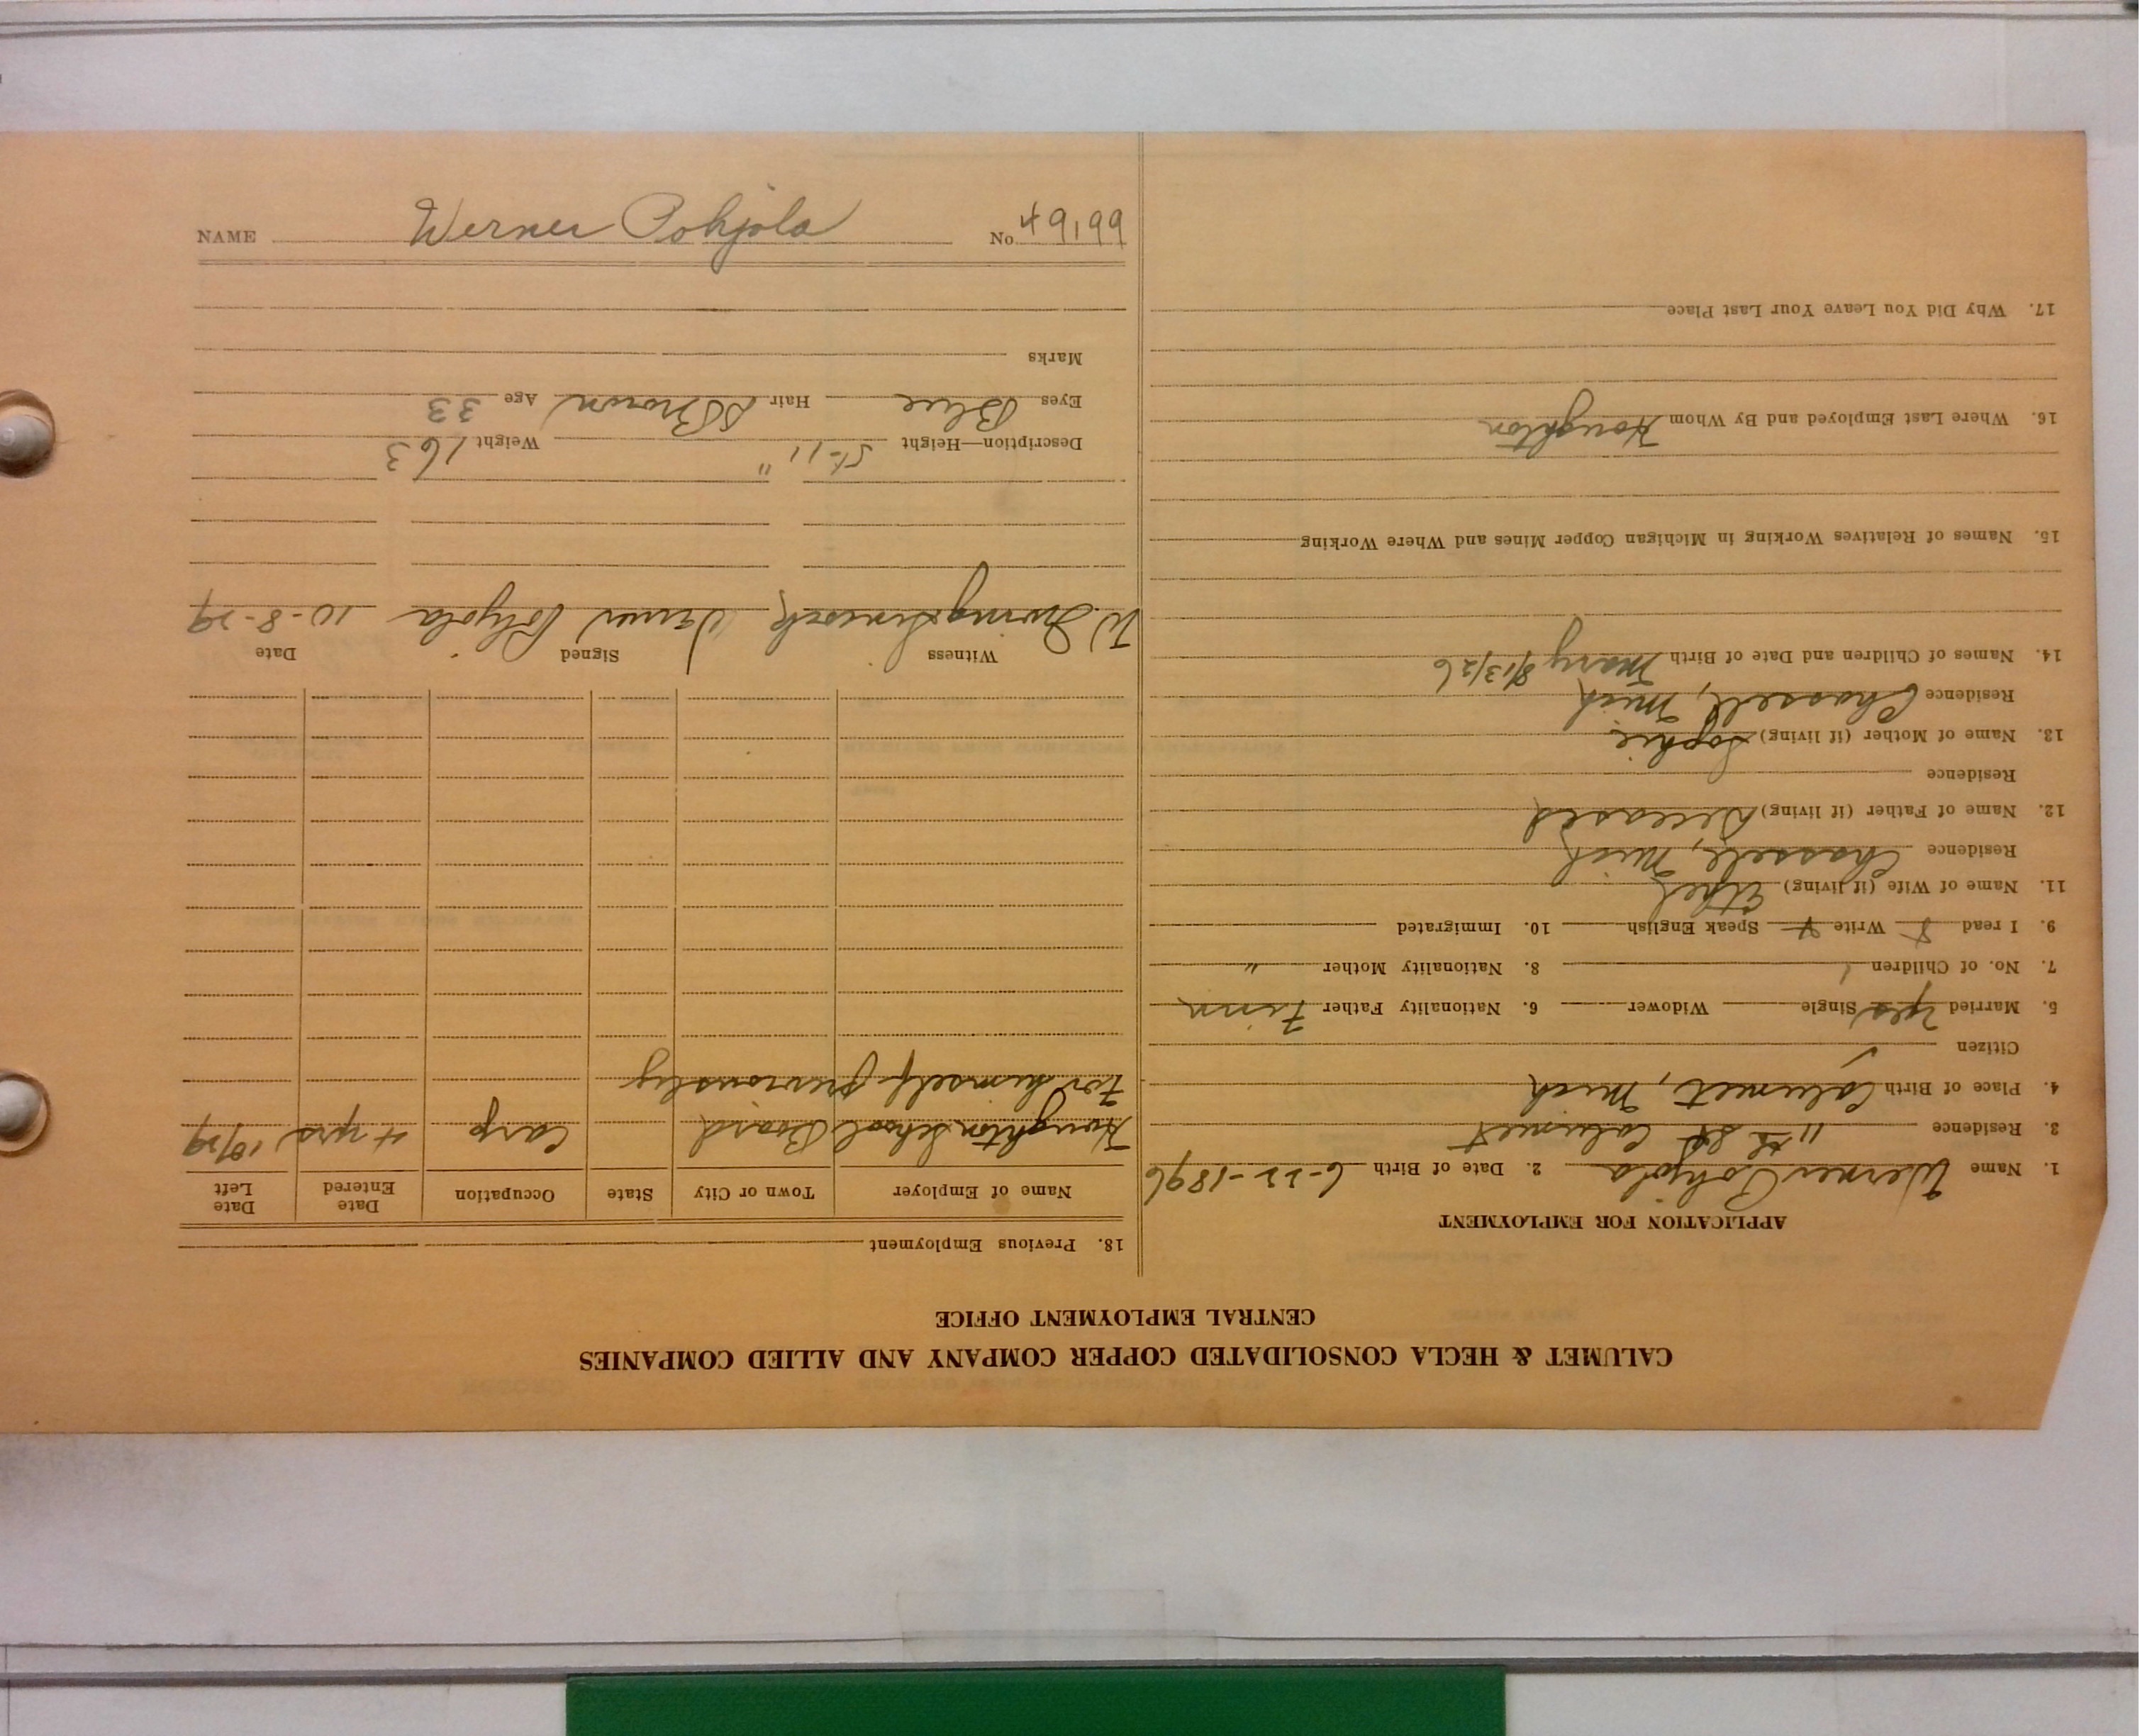 CALUMET & HECLA CONSOLIDATED COPPER COMPANY AND ALLIED COMPANIES
CENTRAL EMPLOYMENT OFFICE
APPLICATION FOR EMPLOYMENT
1. Name Werner Pohjola 2. Date of Birth 6-22-1896
3. Residence 11th St Calumet
4. Place of Birth Calumet, Mich
Citizen ✓
5. Married yes Single Widower 6. Nationality Father Finn
7. No. of Children 1 8. Nationality Mother "
9. I read Write Speak English 10. Immigrated
11. Name of Wife (if living) Ethel
Residence Chassell, Mich
12. Name of Father (if living) Deceased
Residence
13. Name of Mother (if living) Sophie
Residence Chassell, Mich
14. Names of Children and Date of Birth Mary 8/13/26
15. Names of Relatives Working in Michigan Copper Mines and Where Working
16. Where Last Employed and By Whom Houghton
17. Why Did You Leave Your Last Place
18. Previous Employment
Name of Employer Town or City State Occupation Date Entered Date Left
Houghton School Board Carp 4 yrs 10/29
For himself previously
Witness Signed Date
W. Werner Pohjola 10-8-29
Description—Height 5-11" Weight 163
Eyes Blue Hair Brown Age 33
Marks
NAME Werner Pohjola No 49,199